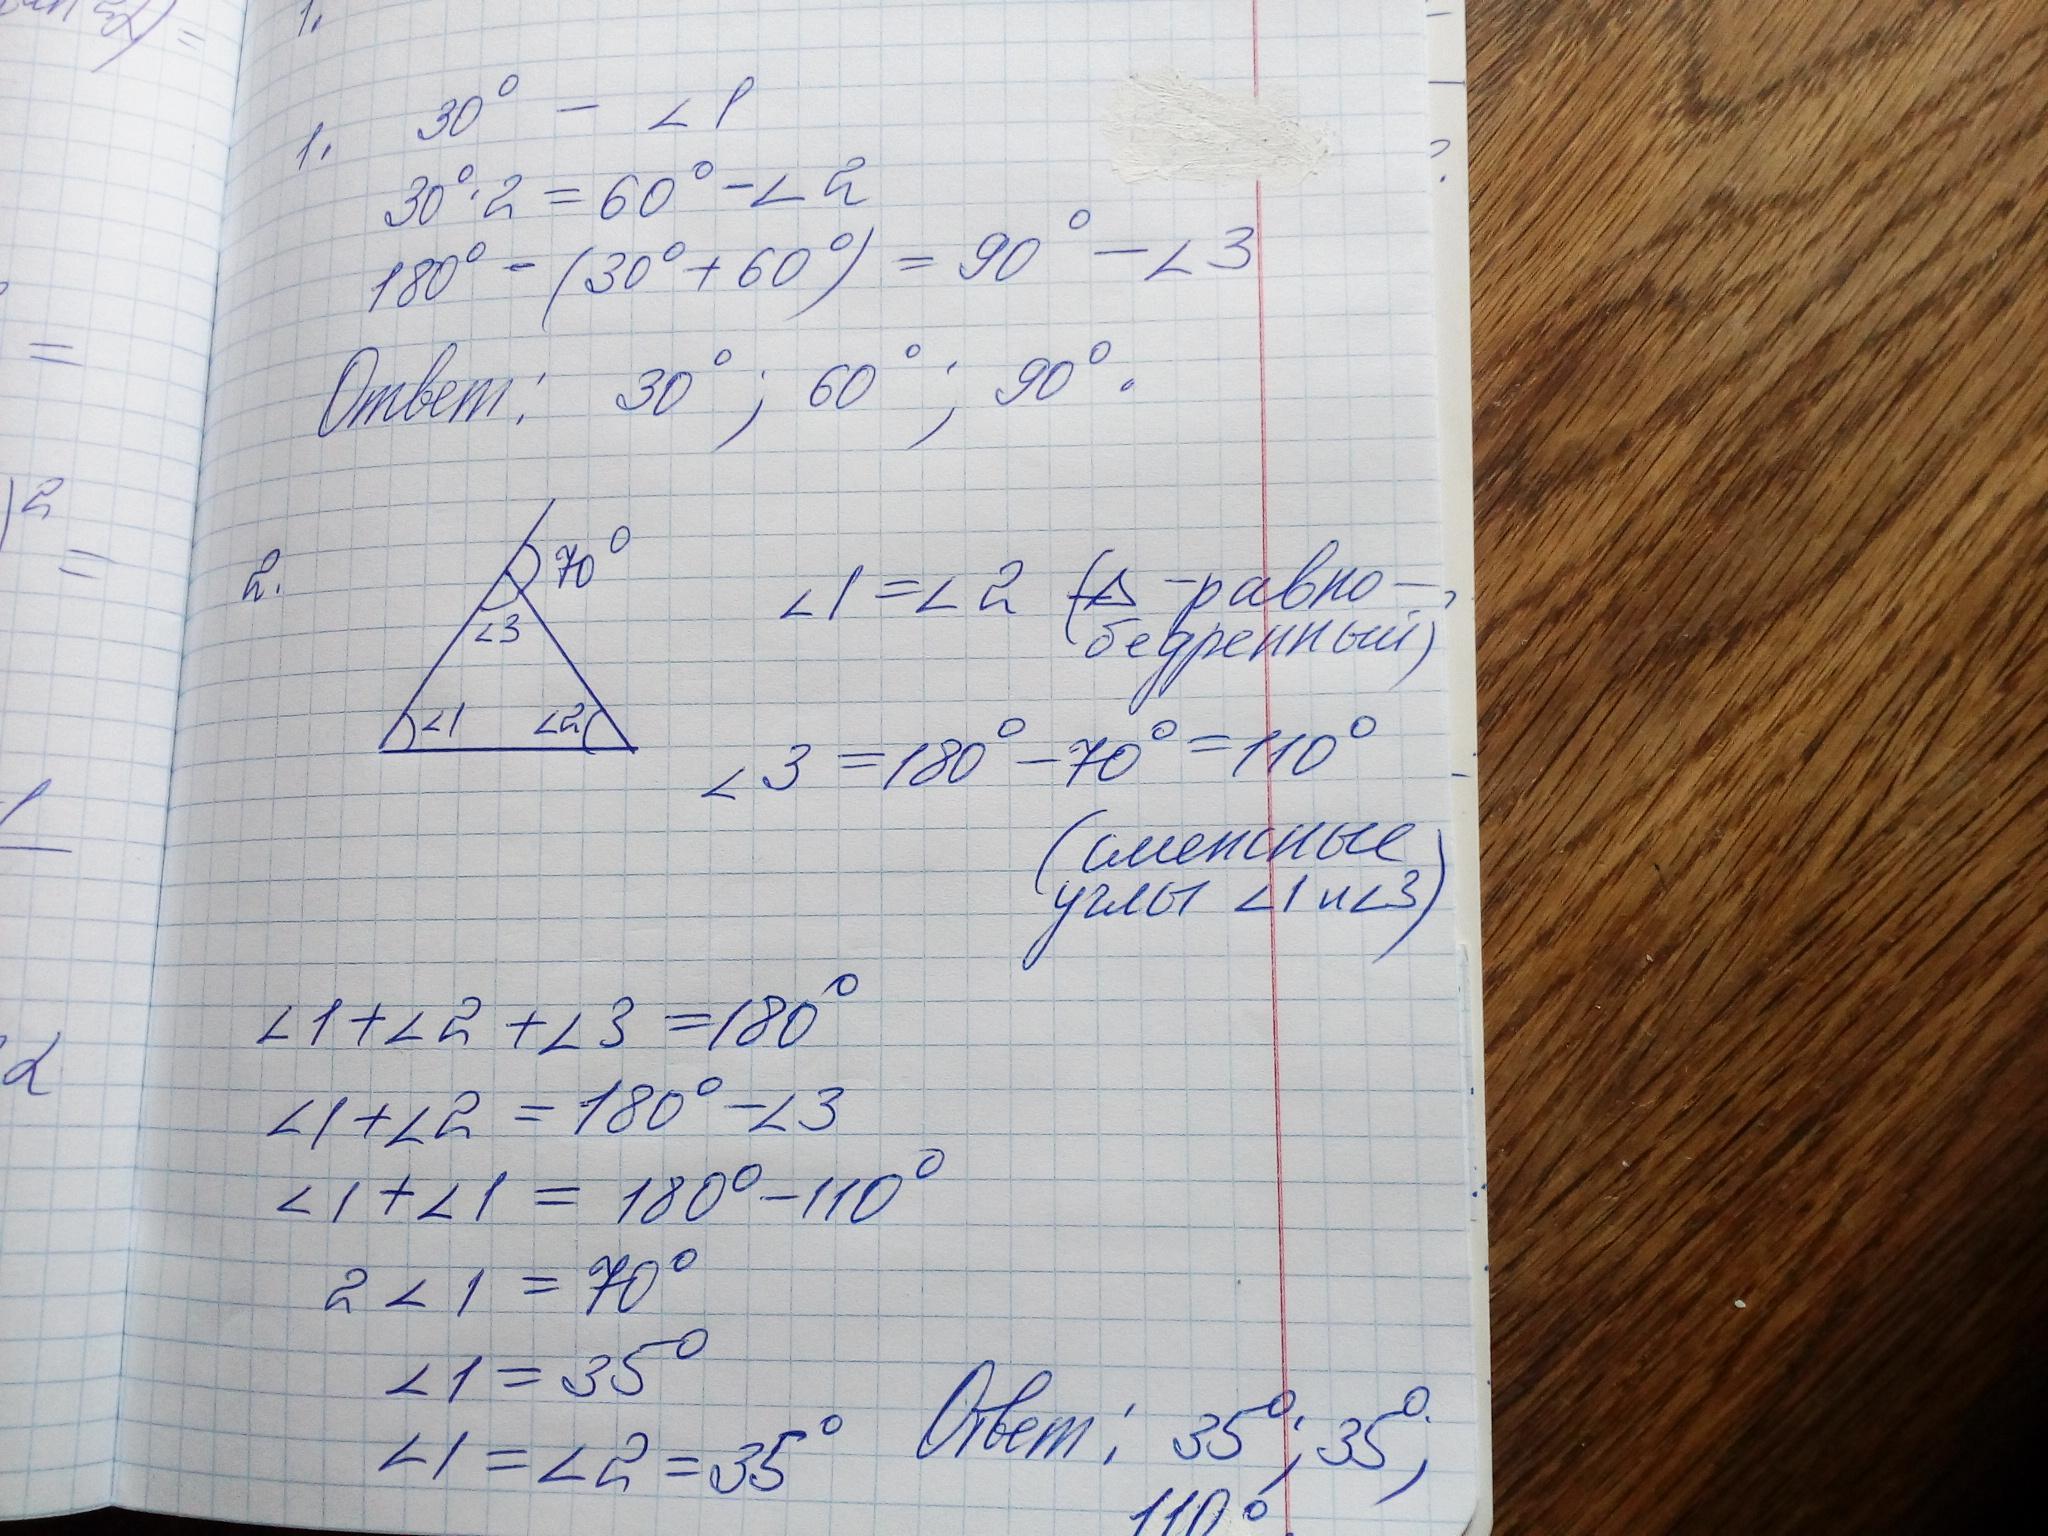 1.
1. 30° - ∠1
30°·2 = 60° - ∠2
180° - (30° + 60°) = 90° - ∠3
Ответ: 30°; 60°; 90°.
2.
70°
∠3
∠1 ∠2
∠1 = ∠2 (Δ - равно-
бедренный)
∠3 = 180° - 70° = 110°
(смежные
углы ∠1 и ∠3)
∠1 + ∠2 + ∠3 = 180°
∠1 + ∠2 = 180° - ∠3
∠1 + ∠1 = 180° - 110°
2∠1 = 70°
∠1 = 35°
∠1 = ∠2 = 35°
Ответ: 35°; 35°;
110°.